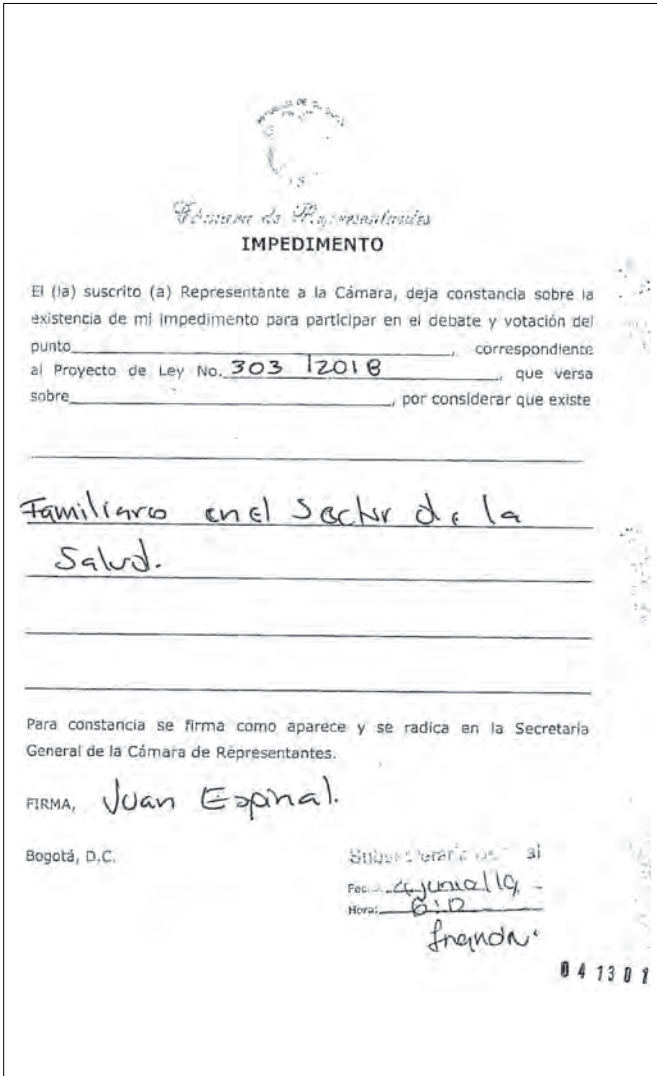 Cámara de Representantes
IMPEDIMENTO
El (la) suscrito (a) Representante a la Cámara, deja constancia sobre la
existencia de mi impedimento para participar en el debate y votación del
punto , correspondiente
al Proyecto de Ley No. 303 /2018 , que versa
sobre , por considerar que existe
Familiares en el Sector de la
Salud.
Para constancia se firma como aparece y se radica en la Secretaria
General de la Cámara de Representantes.
FIRMA, Juan Espinal.
Bogotá, D.C.
Hora:
041301